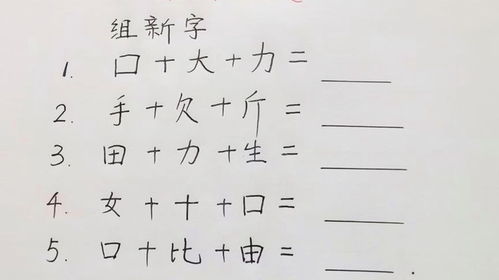 组新字
1. 口+大+力= ____
2. 手+欠+斤= ____
3. 田+力+生= ____
4. 女+十+口= ____
5. 口+比+由= ____.